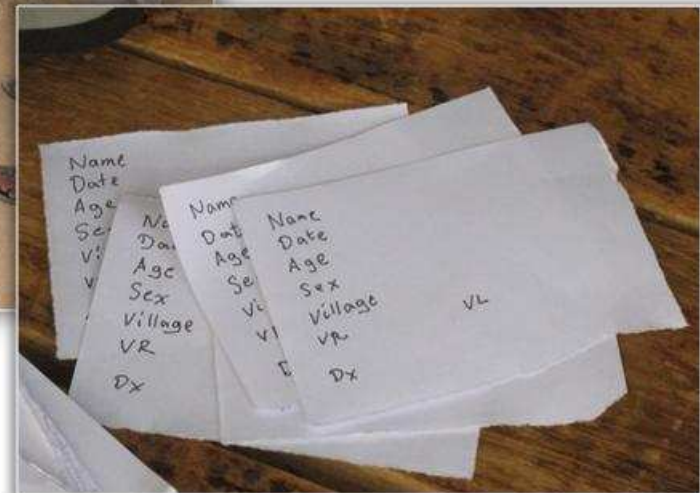 Name
Date
Age
Se
Vi
V
Na
Da
Age
Sex
Village
VR
Dx
Nam
Dat
Age
Se
Vi
V
D
Name
Date
Age
Sex
Village
VR VL
Dx